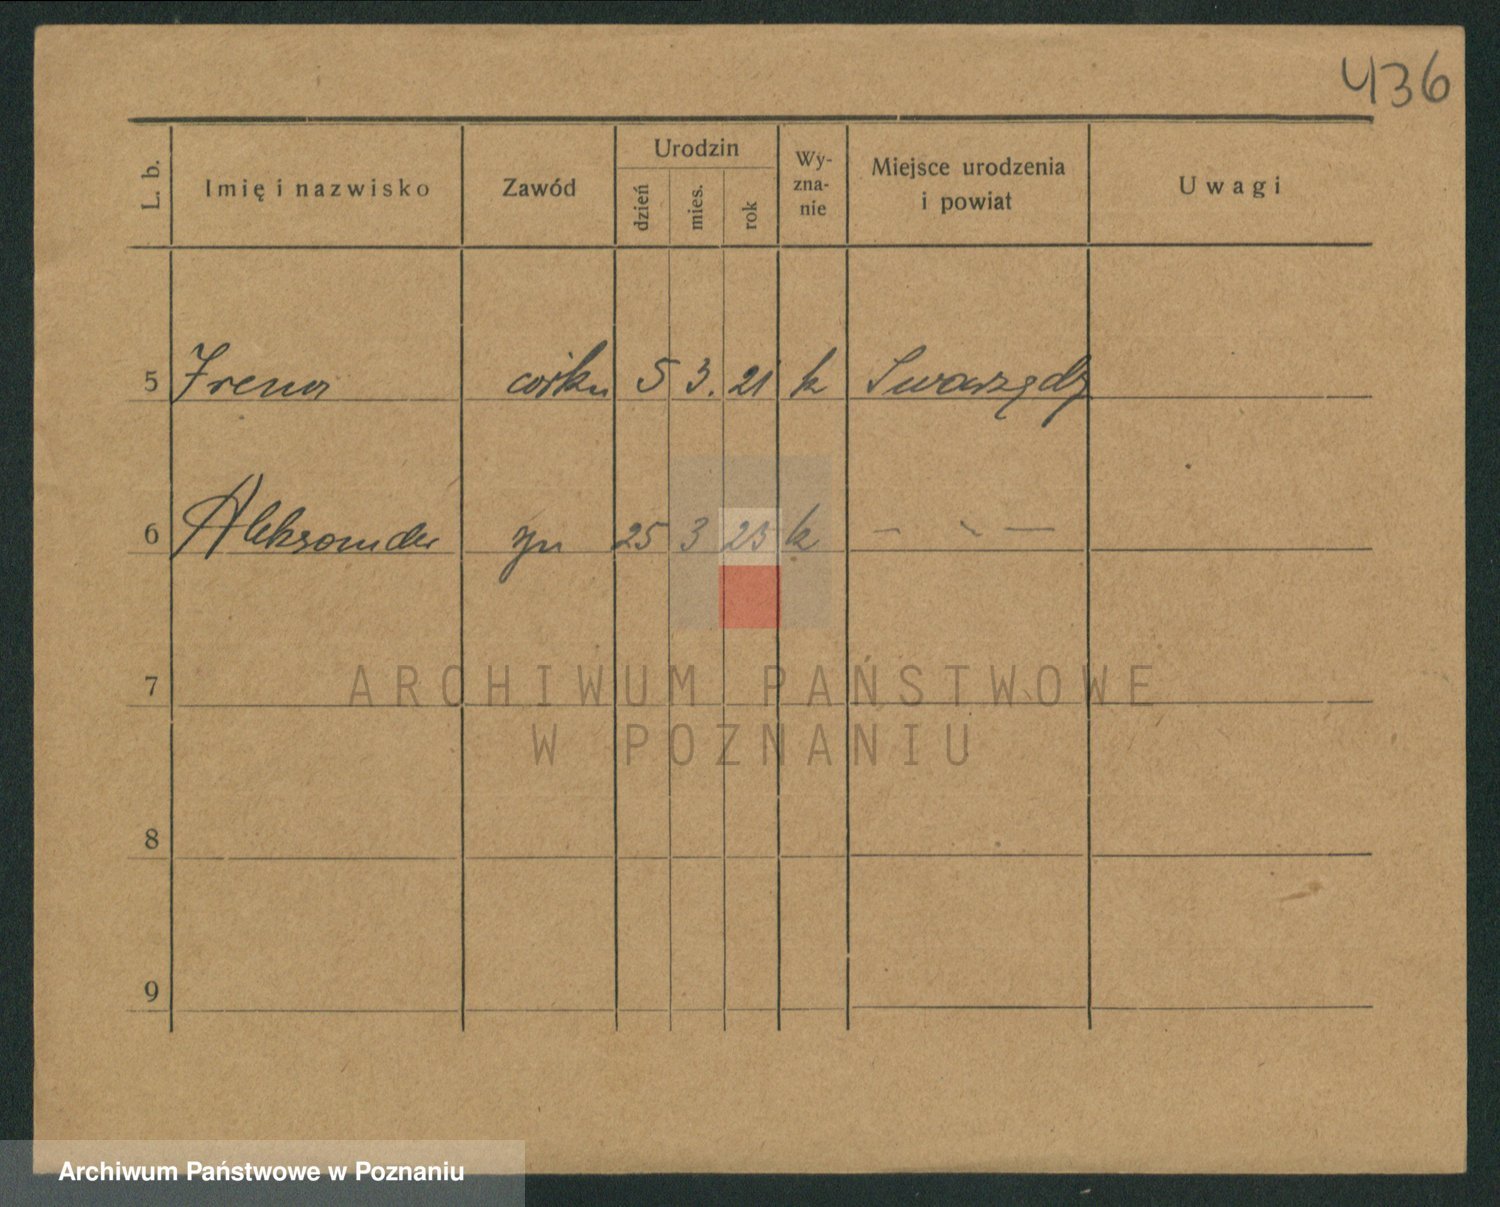 436
L. b. Imię i nazwisko Zawód Urodzin dzień mies. rok Wy-
zna-
nie Miejsce urodzenia
i powiat Uwagi
5 Irena córka 5 3. 21 k Swarzędz
6 Aleksander syn 25 3 23 k — " —
7
8
9
ARCHIWUM PAŃSTWOWE
W POZNANIU
Archiwum Państwowe w Poznaniu